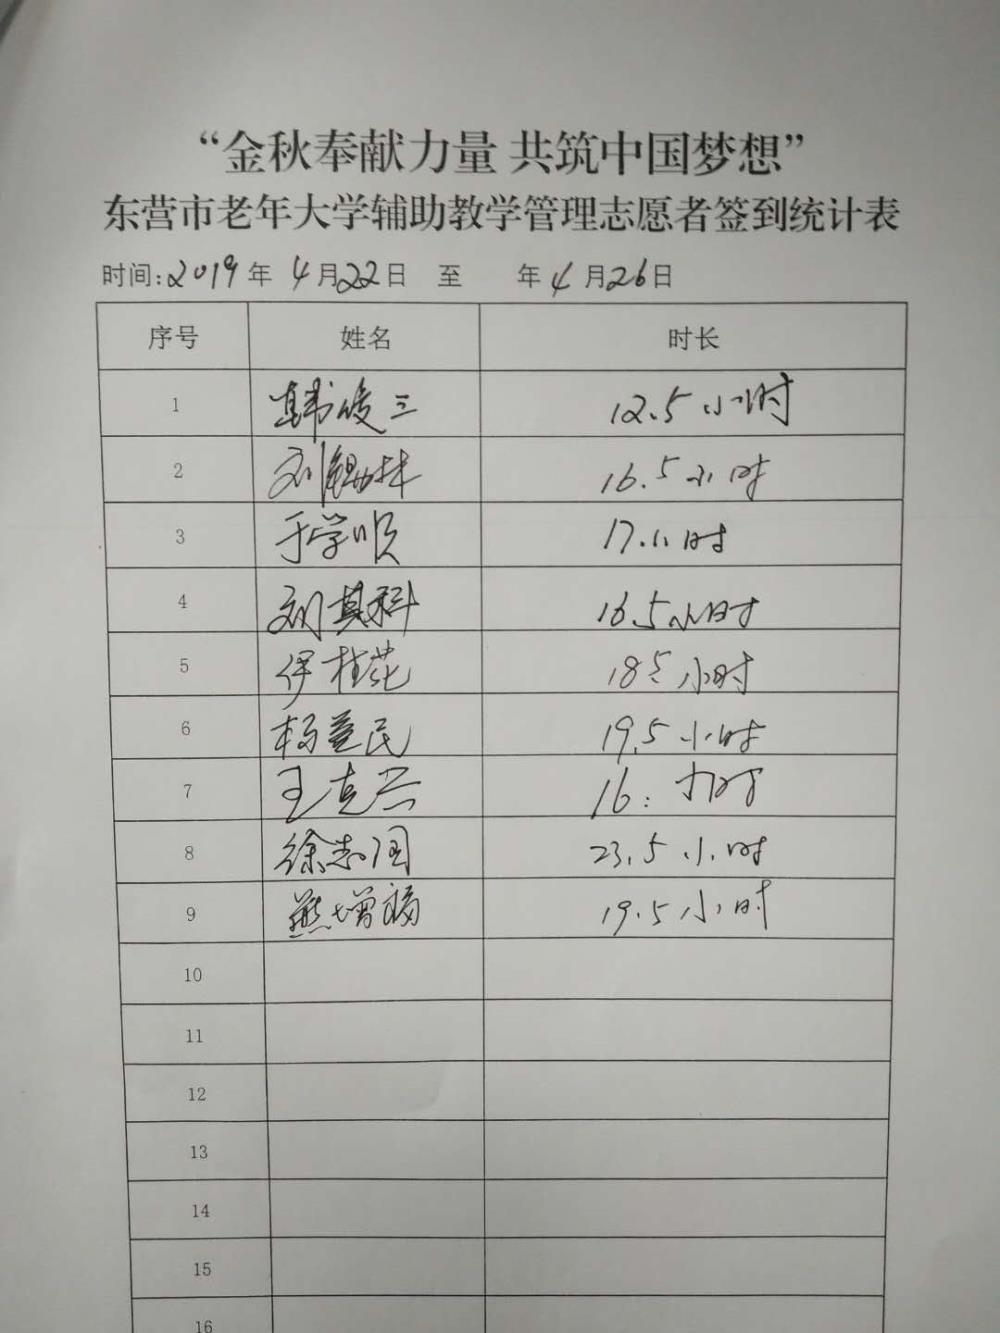 “金秋奉献力量 共筑中国梦想”
东营市老年大学辅助教学管理志愿者签到统计表
时间:2019年 4月22日 至 年4月26日
序号 姓名 时长
1 韩俊三 12.5小时
2 刘锡林 16.5小时
3 于学顺 17.小时
4 刘其科 16.5小时
5 伊桂花 18.5小时
6 杨益民 19.5小时
7 王克兴 16: 小时
8 徐志国 23.5小时
9 熊增福 19.5小时
10
11
12
13
14
15
16